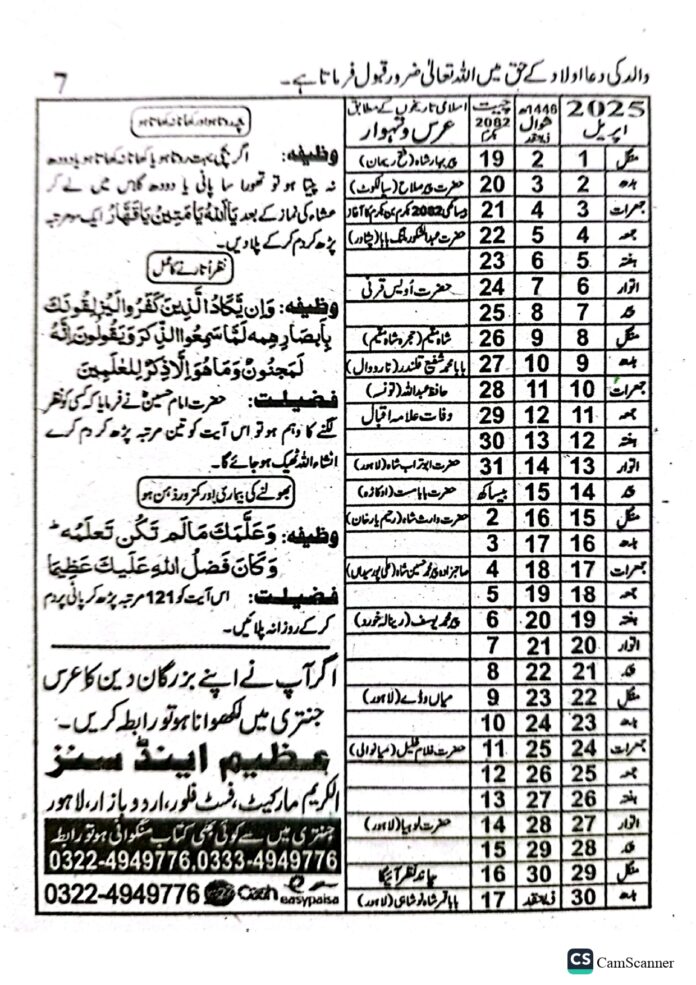 7
والد کی دعا اولاد کے حق میں اللہ تعالیٰ ضرور قبول فرماتا ہے۔
2025 اپریل | 1446ھ شوال ذیلقعد | چیت 2082 بکرمی | اسلامی تاریخوں کے مطابق عرس و تہوار
منگل 1 2 19 پیر بہار شاہ
بدھ 2 3 20 حضرت پیر صلاح (سیالکوٹ)
جمعرات 3 4 21 بیساکھی 2082 بکرم سن بکرم کا آغاز
جمعہ 4 5 22 حضرت عبدالشکور ملنگ بابا (پشاور)
ہفتہ 5 6 23
اتوار 6 7 24 حضرت اویس قرنی
پیر 7 8 25
منگل 8 9 26 شاہ مقیم (حجرہ شاہ مقیم)
بدھ 9 10 27 بابا محمد شفیع قلندر (نارووال)
جمعرات 10 11 28 حافظ عبداللہ (تونسہ)
جمعہ 11 12 29 وفات علامہ اقبال
ہفتہ 12 13 30
اتوار 13 14 31 حضرت ابوتراب شاہ (لاہور)
پیر 14 15 بیساکھ حضرت بابا مست (اوکاڑہ)
منگل 15 16 2 حضرت وارث شاہ (رحیم یارخان)
بدھ 16 17 3
جمعرات 17 18 4 صاجزادہ پیر محمد حسین شاہ (علی پور سیداں)
جمعہ 18 19 5
ہفتہ 19 20 6 پیر محمد یوسف (رینالہ خورد)
اتوار 20 21 7
پیر 21 22 8
منگل 22 23 9 میاں وڈے (لاہور)
بدھ 23 24 10
جمعرات 24 25 11 حضرت غلام خلیل (میانوالی)
جمعہ 25 26 12
ہفتہ 26 27 13
اتوار 27 28 14 حضرت لوہیا (لاہور)
پیر 28 29 15
منگل 29 30 16 چاند نظر آئیگا
بدھ 30 ذیلقعد 17 بابا قر شاہ نوشاہی (لاہور)
بچہ روتا ہو اور کھانا نہ کھاتا ہو
وظیفہ: اگر بچی بہت روتا ہو یا کھانا نہ کھاتا ہو یا دودھ
نہ پیتا ہو تو تھوڑا سا پانی یا دودھ گلاس میں لے کر
عشاء کی نماز کے بعد یَا اَللّٰہُ یَا مَتِیْنُ یَا قَھَّارُ ایک سو مرتبہ
پڑھ کر دم کر کے پلا دیں۔
نظر اُتارنے کا عمل
وظیفہ: وَاِنْ یَّکَادُ الَّذِیْنَ کَفَرُوْا لَیُزْلِقُوْنَكَ
بِاَبْصَارِهِمْ لَمَّا سَمِعُوا الذِّكْرَ وَیَقُوْلُوْنَ اِنَّهٗ
لَمَجْنُوْنٌ وَمَا هُوَ اِلَّا ذِكْرٌ لِّلْعٰلَمِیْنَ
فضیلت: حضرت امام حسینؓ نے فرمایا کہ کسی کو نظر
لگنے کا وہم ہو تو اس آیت کو تین مرتبہ پڑھ کر دم کرے
انشاء اللہ ٹھیک ہو جائے گا۔
بھولنے کی بیماری اور کمزور ذہن ہو
وظیفہ: وَعَلَّمَكَ مَا لَمْ تَكُنْ تَعْلَمُ ؕ
وَكَانَ فَضْلُ اللّٰهِ عَلَیْكَ عَظِیْمًا
فضیلت: اس آیت کو 121 مرتبہ پڑھ کر پانی پر دم
کر کے روزانہ پلائیں۔
اگر آپ نے اپنے بزرگان دین کا عرس
جنتری میں لکھوانا ہو تو رابطہ کریں۔
عظیم اینڈ سنز
الکریم مارکیٹ، فسٹ فلور، اردو بازار، لاہور
جنتری میں سے کوئی بھی کتاب منگوانی ہو تو رابطہ
0322-4949776,0333-4949776
0322-4949776 Cash easypaisa
CS CamScanner